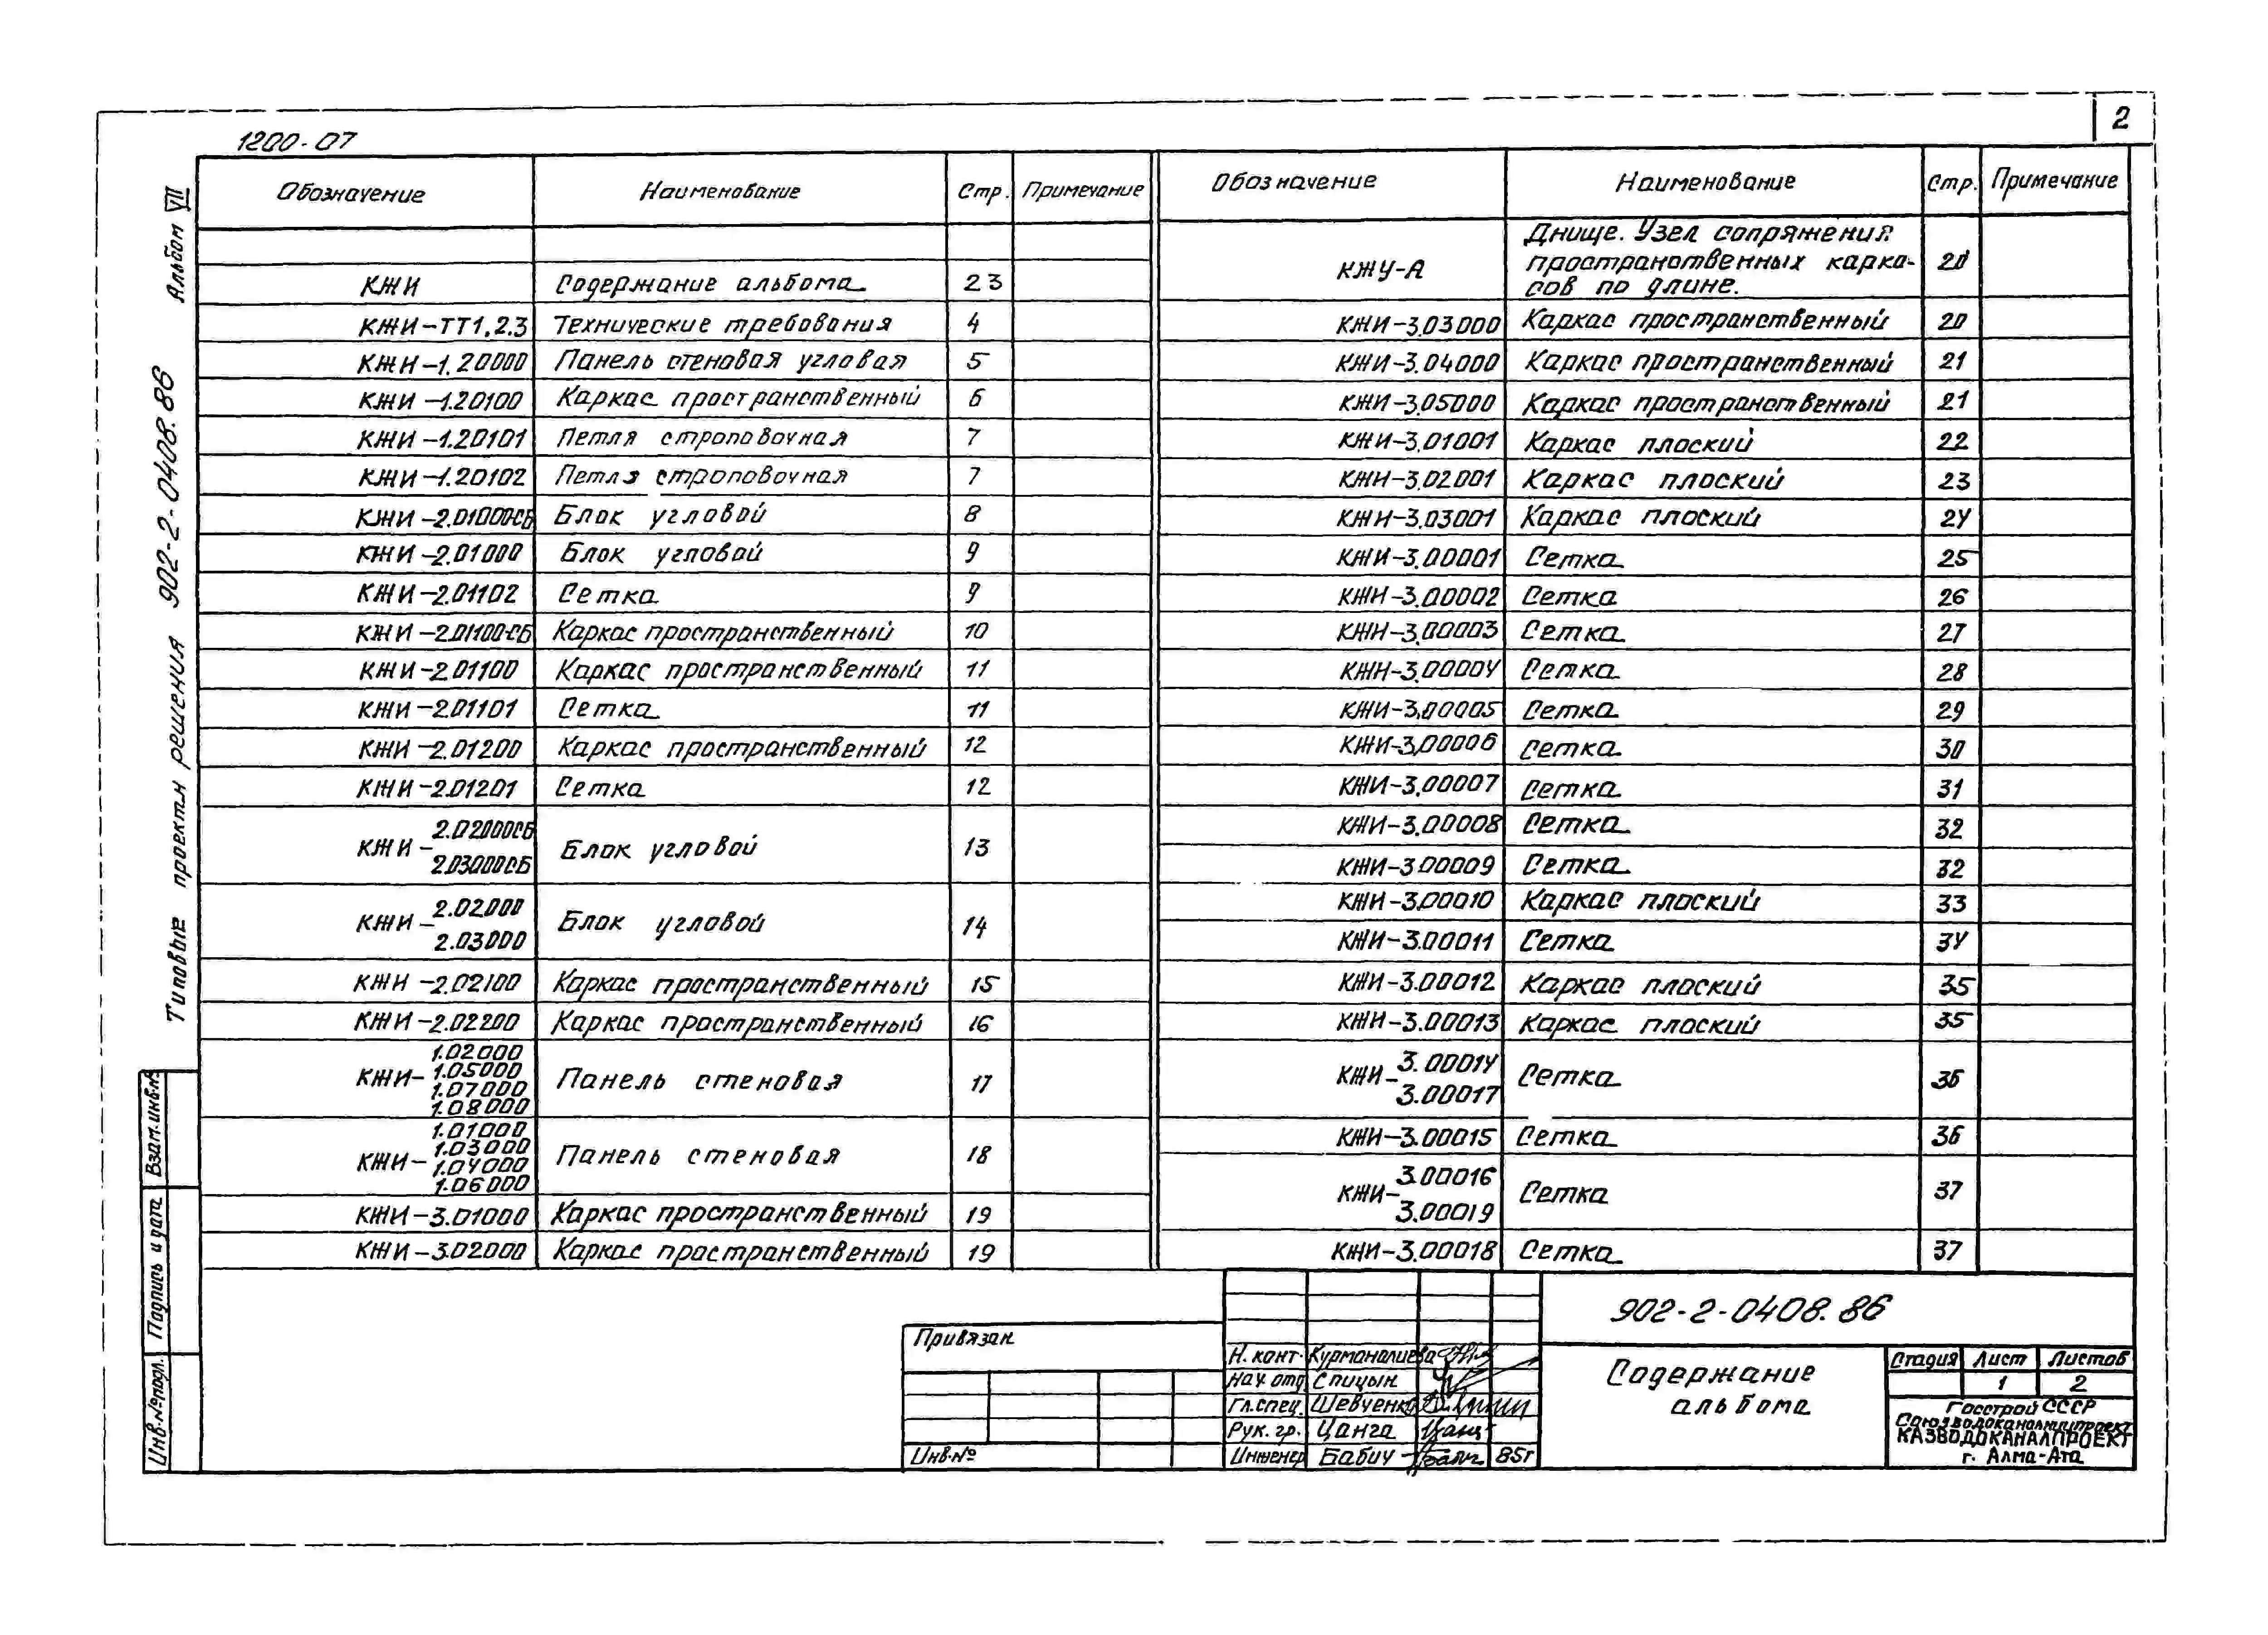 2
1200-07
Альбом VII
Типовые проекты решения 902-2-0408.86
Взам.инв.№
Подпись и дата
Инв.№подл.
Обозначение Наименование Стр. Примечание
КЖИ Содержание альбома 2 3
КЖИ-ТТ1.2.3 Технические требования 4
КЖИ-1.20000 Панель стеновая угловая 5
КЖИ-1.20100 Каркас пространственный 6
КЖИ-1.20101 Петля строповочная 7
КЖИ-1.20102 Петля строповочная 7
КЖИ-2.01000СБ Блок угловой 8
КЖИ-2.01000 Блок угловой 9
КЖИ-2.01102 Сетка 9
КЖИ-2.01100-СБ Каркас пространственный 10
КЖИ-2.01100 Каркас пространственный 11
КЖИ-2.01101 Сетка 11
КЖИ-2.01200 Каркас пространственный 12
КЖИ-2.01201 Сетка 12
КЖИ- 2.02000СБ
2.03000СБ Блок угловой 13
КЖИ- 2.02000
2.03000 Блок угловой 14
КЖИ-2.02100 Каркас пространственный 15
КЖИ-2.02200 Каркас пространственный 16
1.02000
КЖИ- 1.05000 Панель стеновая 17
1.07000
1.08000
1.01000
1.03000
КЖИ- 1.04000 Панель стеновая 18
1.06000
КЖИ-3.01000 Каркас пространственный 19
КЖИ-3.02000 Каркас пространственный 19
Обозначение Наименование Стр. Примечание
Днище. Узел сопряжения
КЖУ-А пространственных карка- 20
сов по длине.
КЖИ-3.03000 Каркас пространственный 20
КЖИ-3.04000 Каркас пространственный 21
КЖИ-3.05000 Каркас пространственный 21
КЖИ-3.01001 Каркас плоский 22
КЖИ-3.02001 Каркас плоский 23
КЖИ-3.03001 Каркас плоский 24
КЖИ-3.00001 Сетка 25
КЖИ-3.00002 Сетка 26
КЖИ-3.00003 Сетка 27
КЖИ-3.00004 Сетка 28
КЖИ-3.00005 Сетка 29
КЖИ-3.00006 Сетка 30
КЖИ-3.00007 Сетка 31
КЖИ-3.00008 Сетка 32
КЖИ-3.00009 Сетка 32
КЖИ-3.00010 Каркас плоский 33
КЖИ-3.00011 Сетка 34
КЖИ-3.00012 Каркас плоский 35
КЖИ-3.00013 Каркас плоский 35
КЖИ- 3.00014
3.00017 Сетка 36
КЖИ-3.00015 Сетка 36
КЖИ- 3.00016
3.00019 Сетка 37
КЖИ-3.00018 Сетка 37
Привязан
Инв.№
Н. конт. Курманалиева
Нач. отд. Спицын
Гл.спец. Шевченко
Рук. гр. Цанга
Инженер Бабич 85г
902-2-0408.86
Содержание
альбома
Стадия Лист Листов
1 2
Госстрой СССР
Союзводоканалниипроект
КАЗВОДОКАНАЛПРОЕКТ
г. Алма-Ата